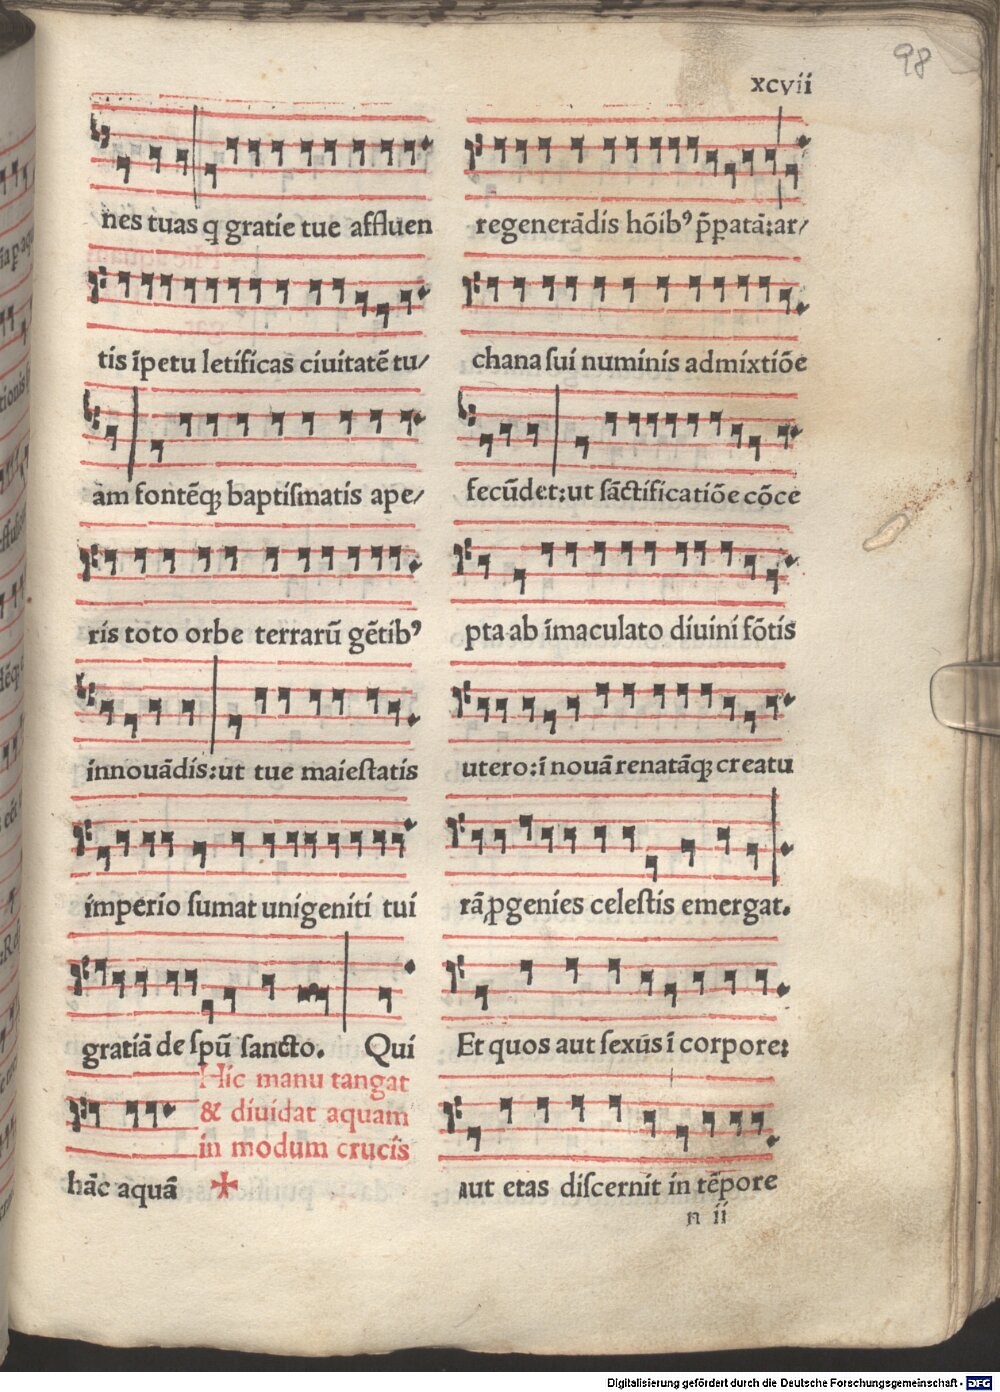 98
xcvii
nes tuas q gratie tue affluen
tis īpetu letificas ciuitatē tu/
am fontēqꝫ baptiſmatis ape/
ris toto orbe terrarū gētibꝰ
innouādis:ut tue maieſtatis
imperio ſumat unigeniti tui
gratiā de ſpū ſancto. Qui
Hic manu tangat
& diuidat aquam
in modum crucis
hāc aquā ✠
regenerādis hōibꝰ p̄ꝑatā:ar/
chana ſui numinis admixtiōe
fecūdet:ut ſāctificatiōe cōce
pta ab īmaculato diuini fōtis
utero:ī nouā renatāqꝫ creatu
rā ꝓgenies celeſtis emergat.
Et quos aut ſexus ī corpore:
aut etas diſcernit in tēpore
n ii
Digitalisierung gefördert durch die Deutsche Forschungsgemeinschaft - DFG